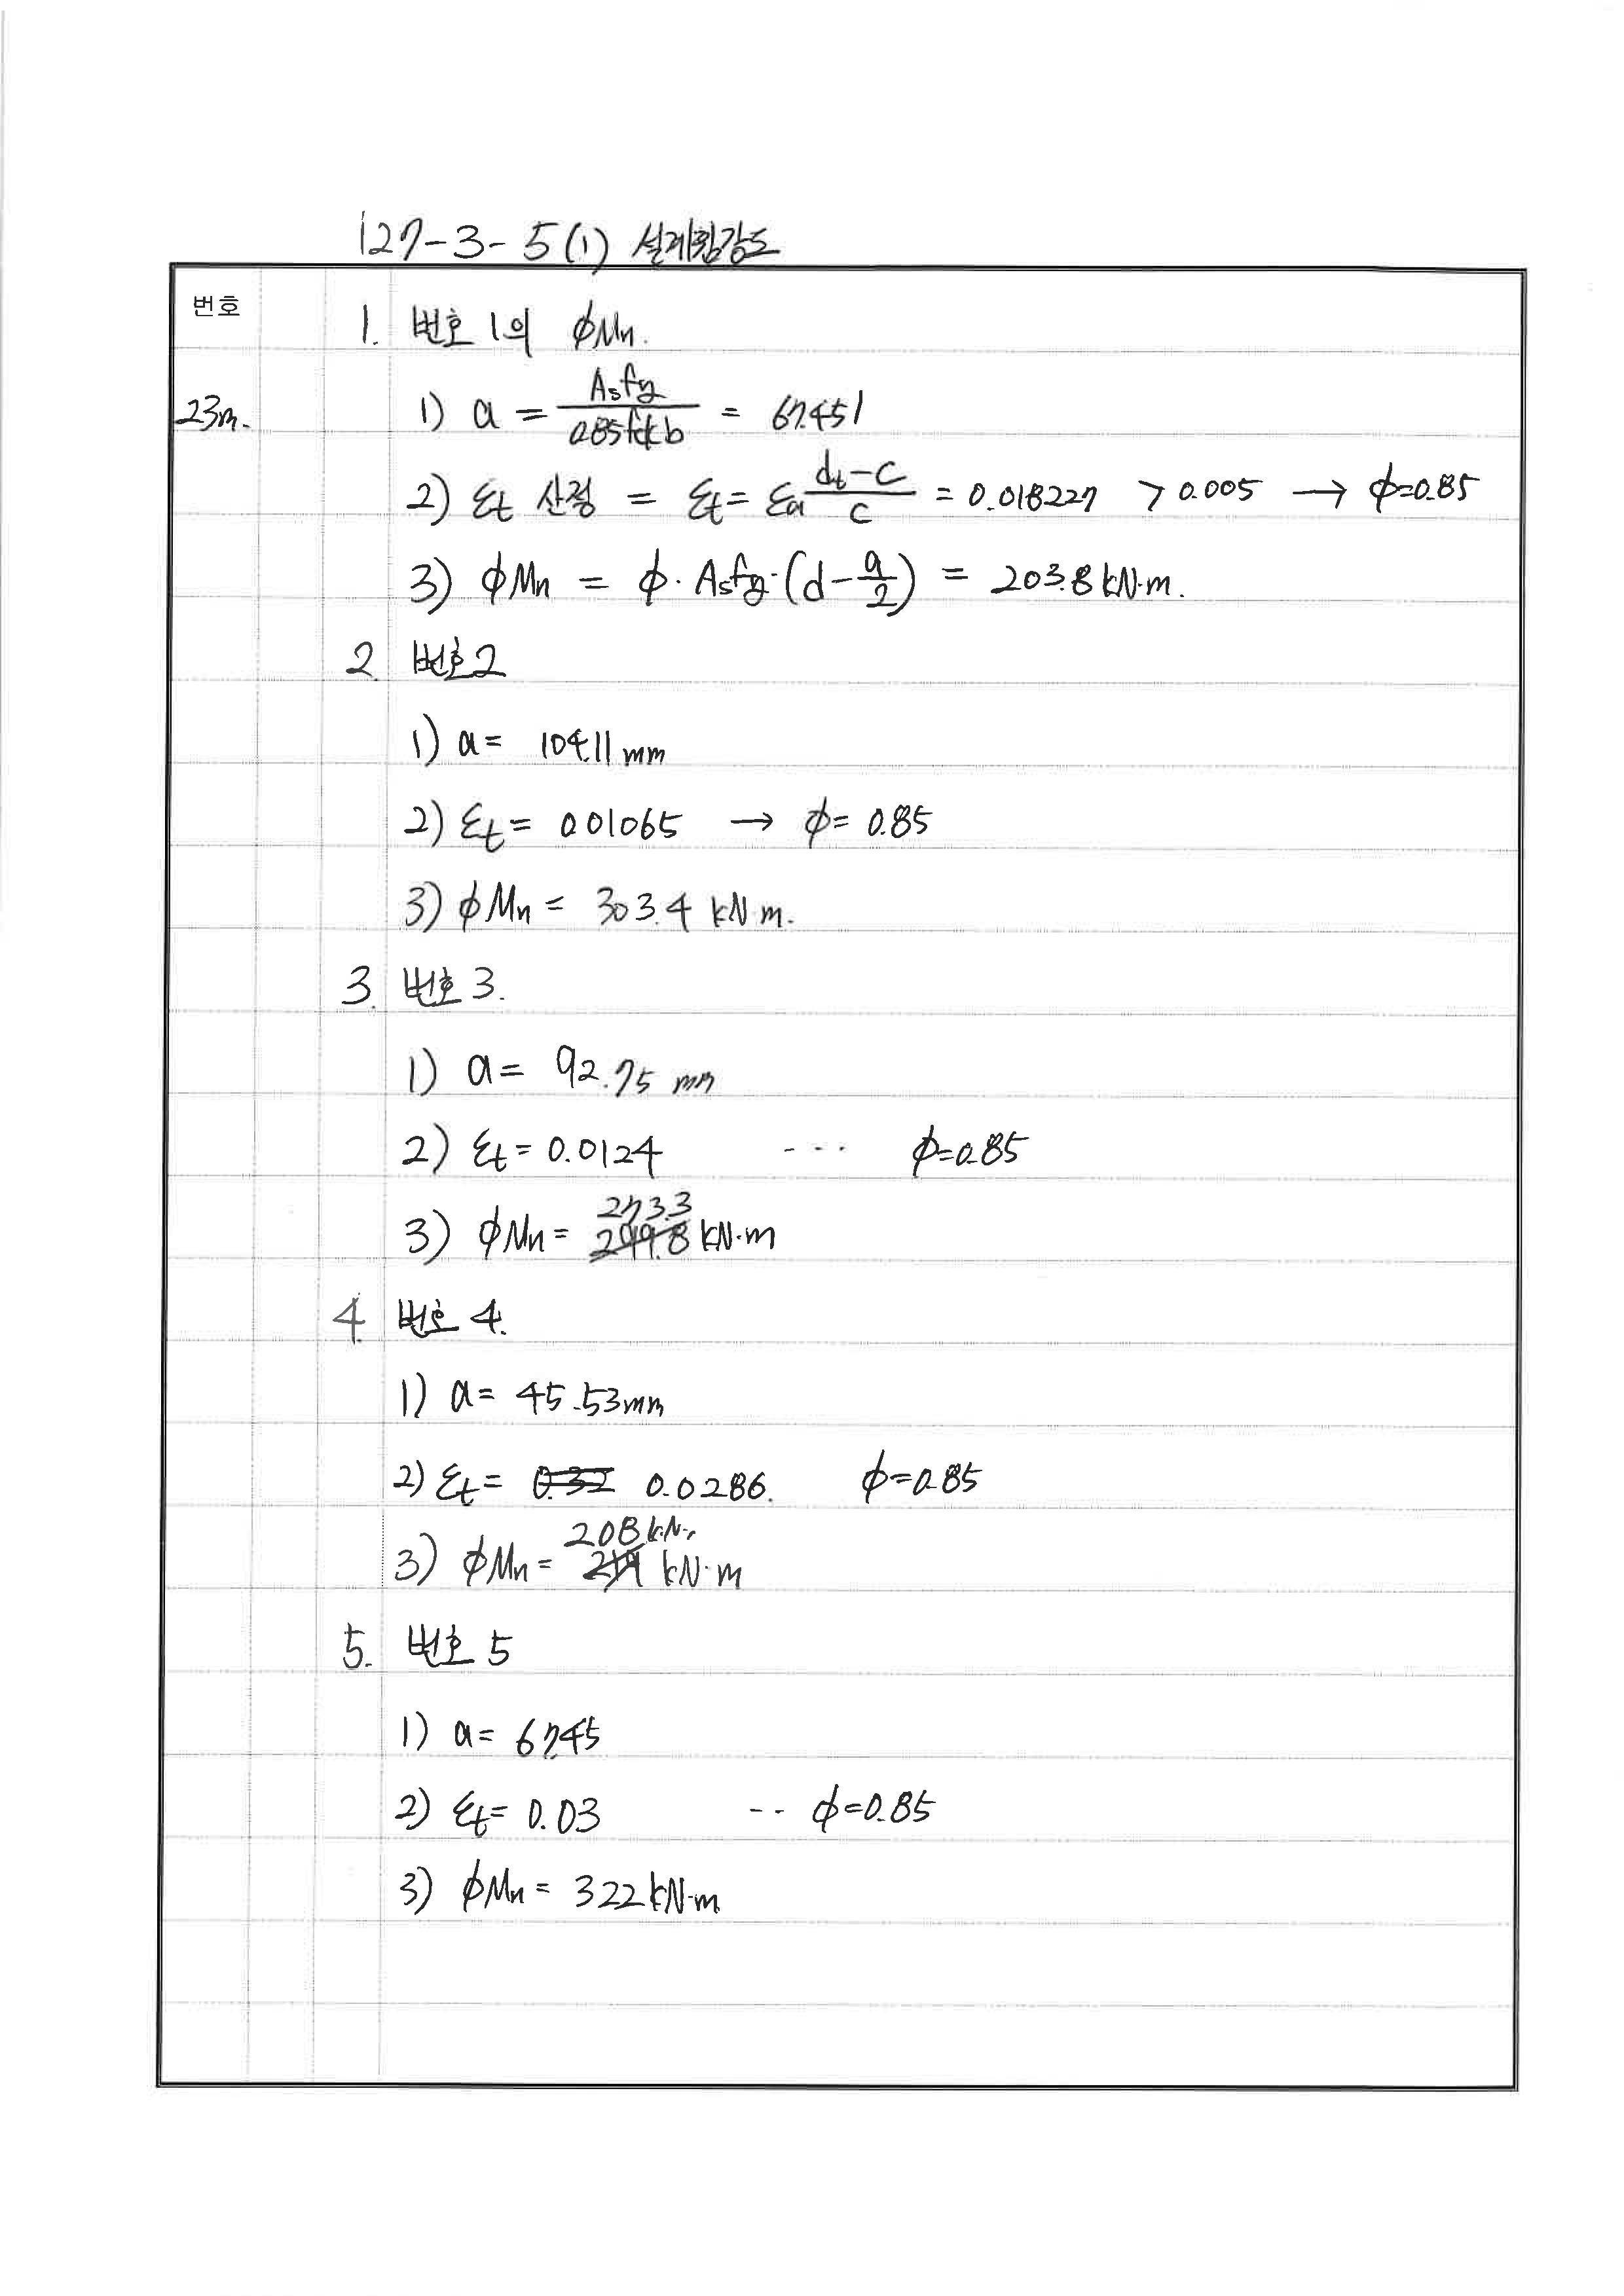 127-3-5(1) 설계휨강도
번호
1. 번호 1의 ϕMn.
23m.
1) a = Asfy / 0.85fck b = 67.451
2) εt 산정 = εt = εcu (dt-c)/c = 0.018227 > 0.005 → ϕ=0.85
3) ϕMn = ϕ·Asfy·(d-a/2) = 203.8 kN·m.
2. 번호2
1) a = 104.11 mm
2) εt = 0.01065 → ϕ = 0.85
3) ϕMn = 303.4 kN·m.
3. 번호 3.
1) a = 92.75 mm
2) εt = 0.0124 --- ϕ=0.85
273.3
3) ϕMn = 299.8 kN·m
4. 번호 4.
1) a = 45.53mm
2) εt = 0.32 0.0286. ϕ=0.85
208 kN·
3) ϕMn = kN·m
5. 번호 5
1) a = 67.45
2) εt = 0.03 -- ϕ=0.85
3) ϕMn = 322 kN·m